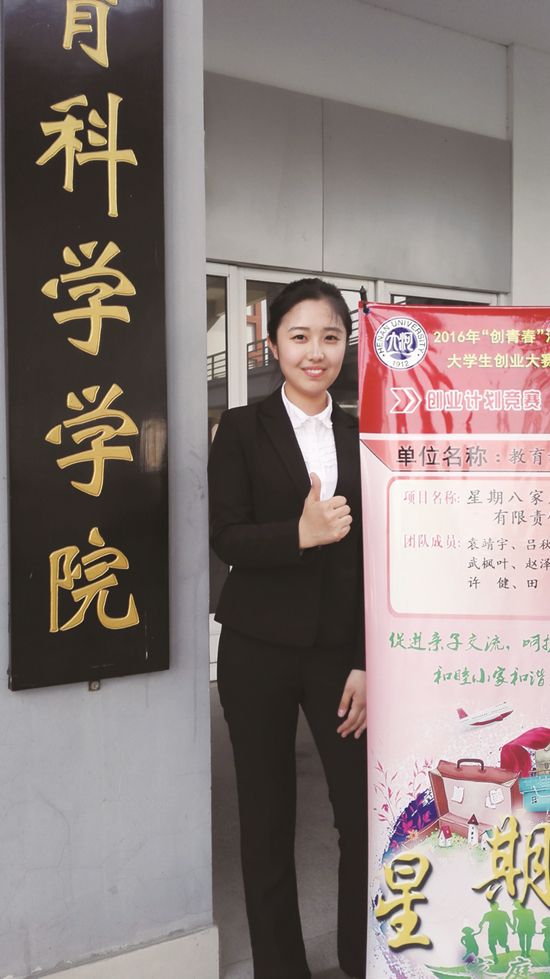 育科学学院
HENAN UNIVERSITY
1912
2016年“创青春”河
大学生创业大赛
创业计划竞赛
单位名称:教育
项目名称:星期八家
有限责任
团队成员:袁靖宇、吕秋
武枫叶、赵泽
许 健、田
促进亲子交流,呵护
和睦小家和谐
星期